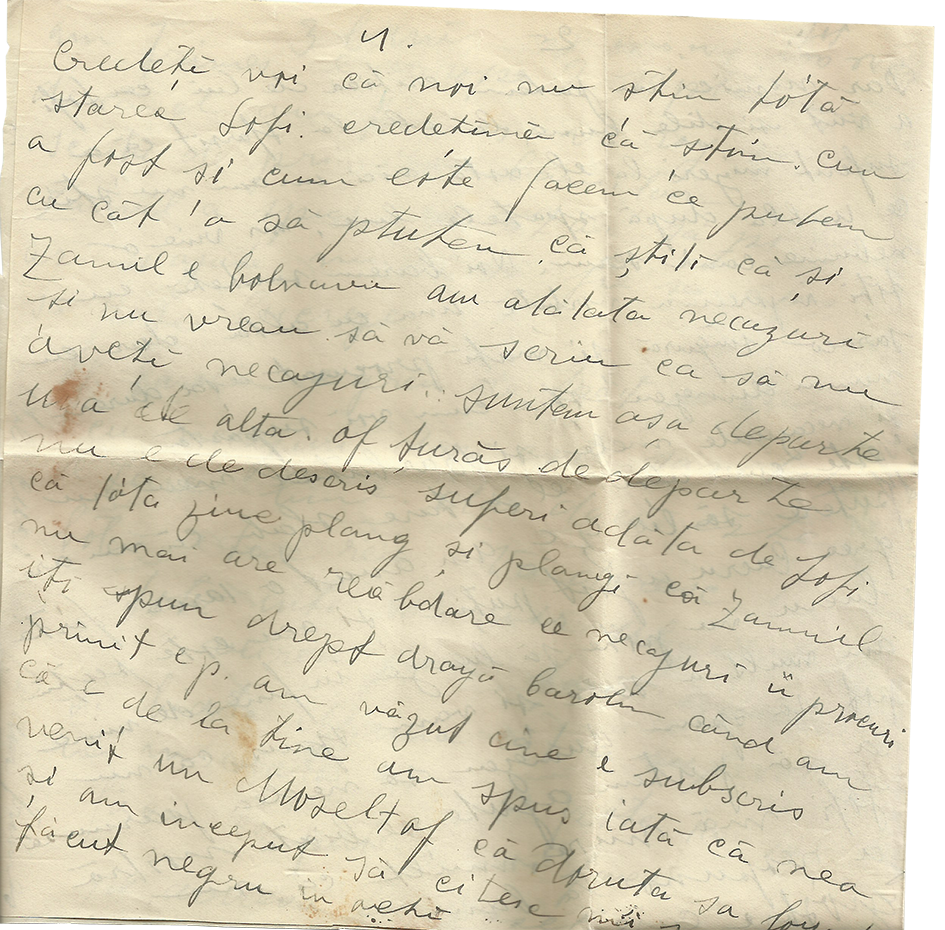 4.
Credeti voi că noi nu stim tótă
starea Sofi. credetimă că stim. cum
a fost si cum este facem ce putem
cu cât o să ptutem că știti că si
Zamil e bolnavu am atâlata necazuri
si nu vreau să vă scriu ca să nu
aveti necajuri.. suntem asa departe
una de alta. of turăs de depar te
nu e de descris superi adâta de Sofi
că tóta zine plang si plangi că Zamuil
nu mai are răbdare ce necajuri ii procuri
iti spun drept dragă carolu când am
primit cp. am văzut cine e subscris
că e de la tine am spus iată că nea
venit un Moselt of că doruta sa
si am inceput să citesc mi
făcut negru in ochi